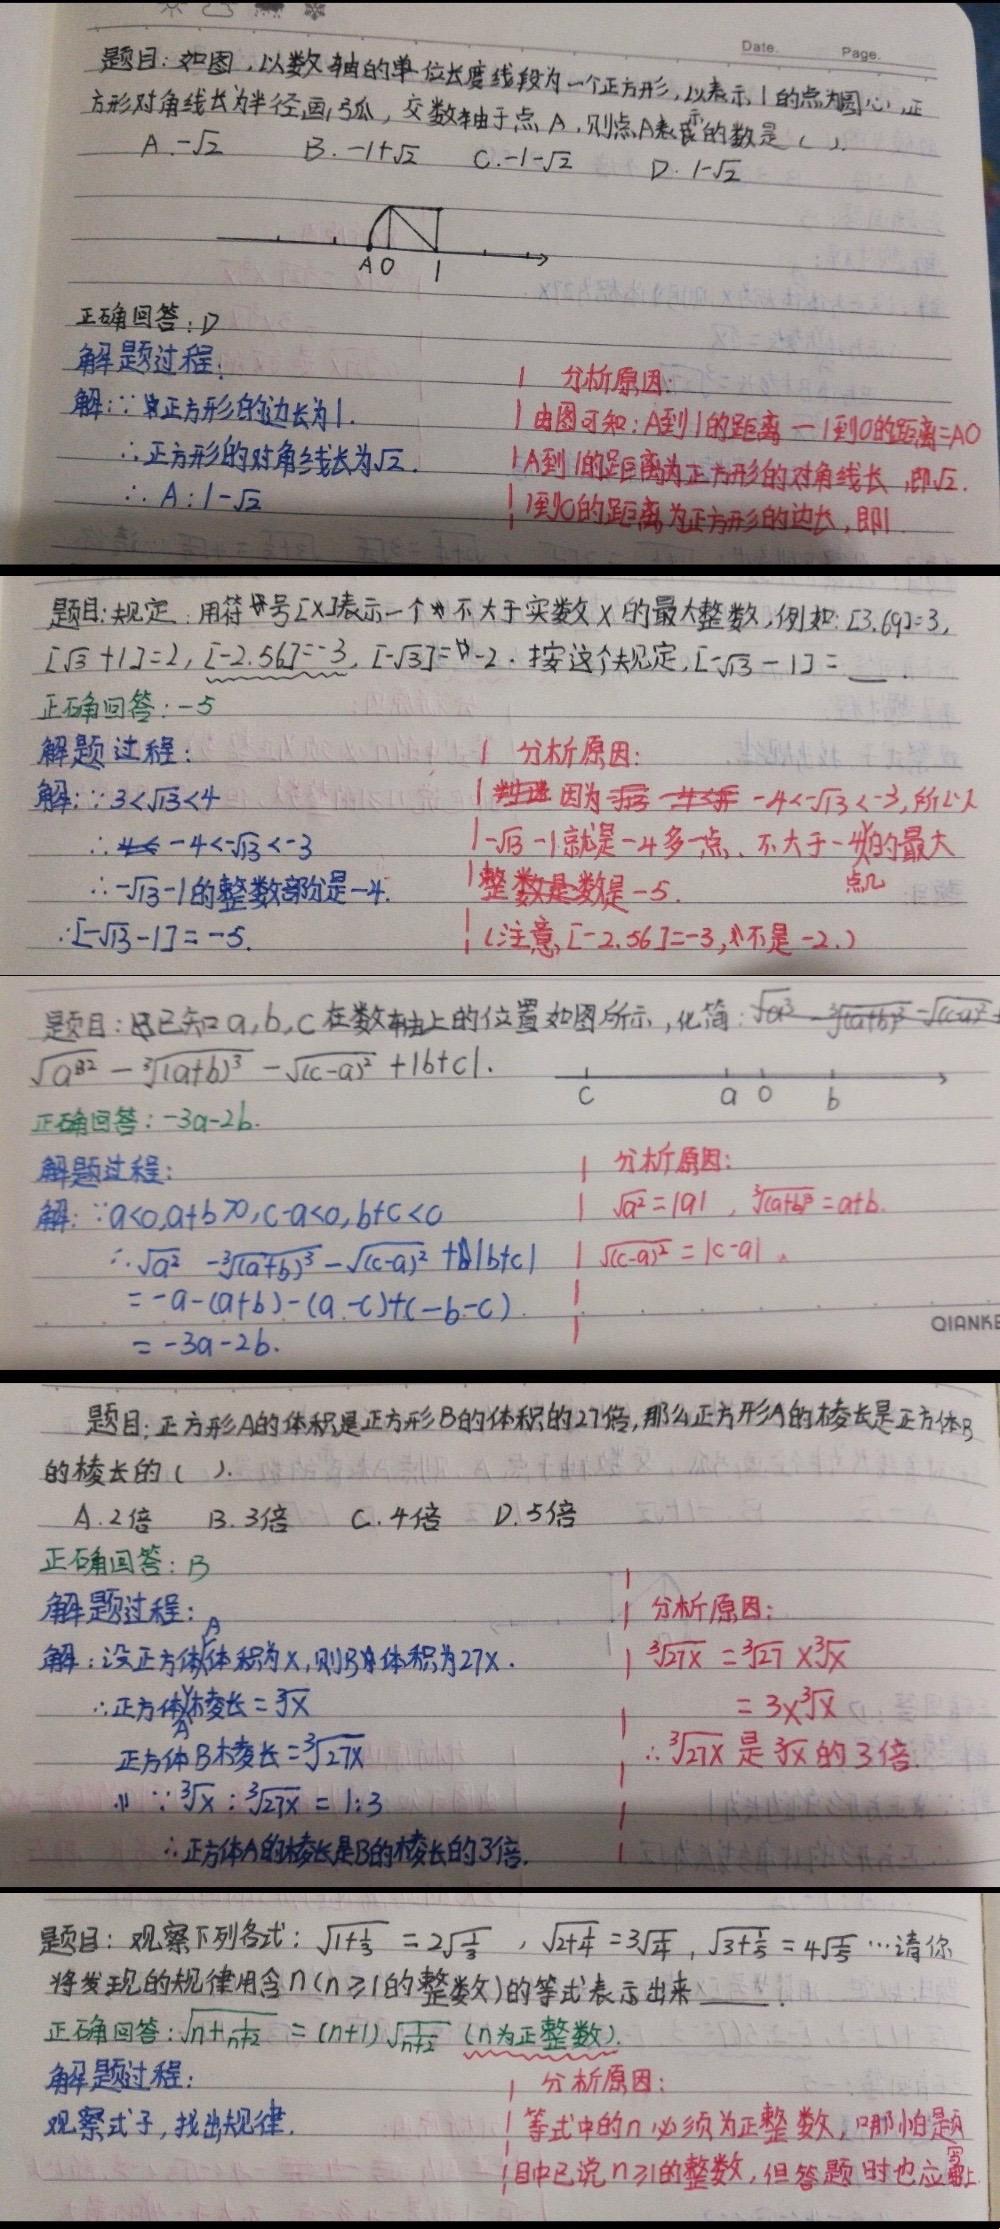 Date. Page.
题目：如图，以数轴的单位长度线段为一个正方形，以表示1的点为圆心，正
方形对角线长为半径画弧，交数轴于点A，则点A表示的数是（ ）.
A.-√2 B.-1+√2 C.-1-√2 D.1-√2
A 0 1
正确回答：D
解题过程：
解：∵正方形的边长为1.
∴正方形的对角线长为√2.
∴A:1-√2
分析原因：
由图可知：A到1的距离-1到0的距离=AO
A到1的距离为正方形的对角线长，即√2.
1到0的距离为正方形的边长，即1.
题目：规定：用符号[X]表示一个不大于实数X的最大整数，例如：[3.69]=3,
[√3+1]=2, [-2.56]=-3, [-√3]=-2. 按这个规定，[-√13-1]=__.
正确回答：-5
解题过程：
解：∵3<√13<4
∴-4<-√13<-3
∴-√13-1的整数部分是-4.
∴[-√13-1]=-5.
分析原因：
因为-4<-√13<-3, 所以
-√13-1就是-4多一点、不大于-4点几的最大
整数是数是-5.
（注意，[-2.56]=-3, 不是-2.）
题目：已知a,b,c在数轴上的位置如图所示，化简：
√a² - ³√(a+b)³ - √(c-a)² +|b+c|.
c a 0 b
正确回答：-3a-2b.
解题过程：
解：∵a<0,a+b>0,c-a<0,b+c<0
∴√a² - ³√(a+b)³ - √(c-a)² +|b+c|
=-a-(a+b)-(a-c)+(-b-c).
=-3a-2b.
分析原因：
√a²=|a|, ³√(a+b)³=a+b.
√(c-a)²=|c-a|.
QIANKE
题目：正方形A的体积是正方形B的体积的27倍，那么正方形A的棱长是正方体B
的棱长的（ ）.
A.2倍 B.3倍 C.4倍 D.5倍
正确回答：B
解题过程：
解：设正方体A体积为X，则B体积为27X.
∴正方体A棱长=³√X
正方体B棱长=³√27X
∵³√X:³√27X=1:3
∴正方体A的棱长是B的棱长的3倍.
分析原因：
³√27X=³√27×³√X
=3×³√X
∴³√27X是³√X的3倍.
题目：观察下列各式：√1+1/3=2√1/3, √2+1/4=3√1/4, √3+1/5=4√1/5…请你
将发现的规律用含n(n≥1的整数)的等式表示出来____.
正确回答：√n+1/n+2=(n+1)√1/n+2 (n为正整数).
解题过程：
观察式子，找出规律.
分析原因：
等式中的n必须为正整数，哪怕是题
目中已说n≥1的整数，但答题时也应写上